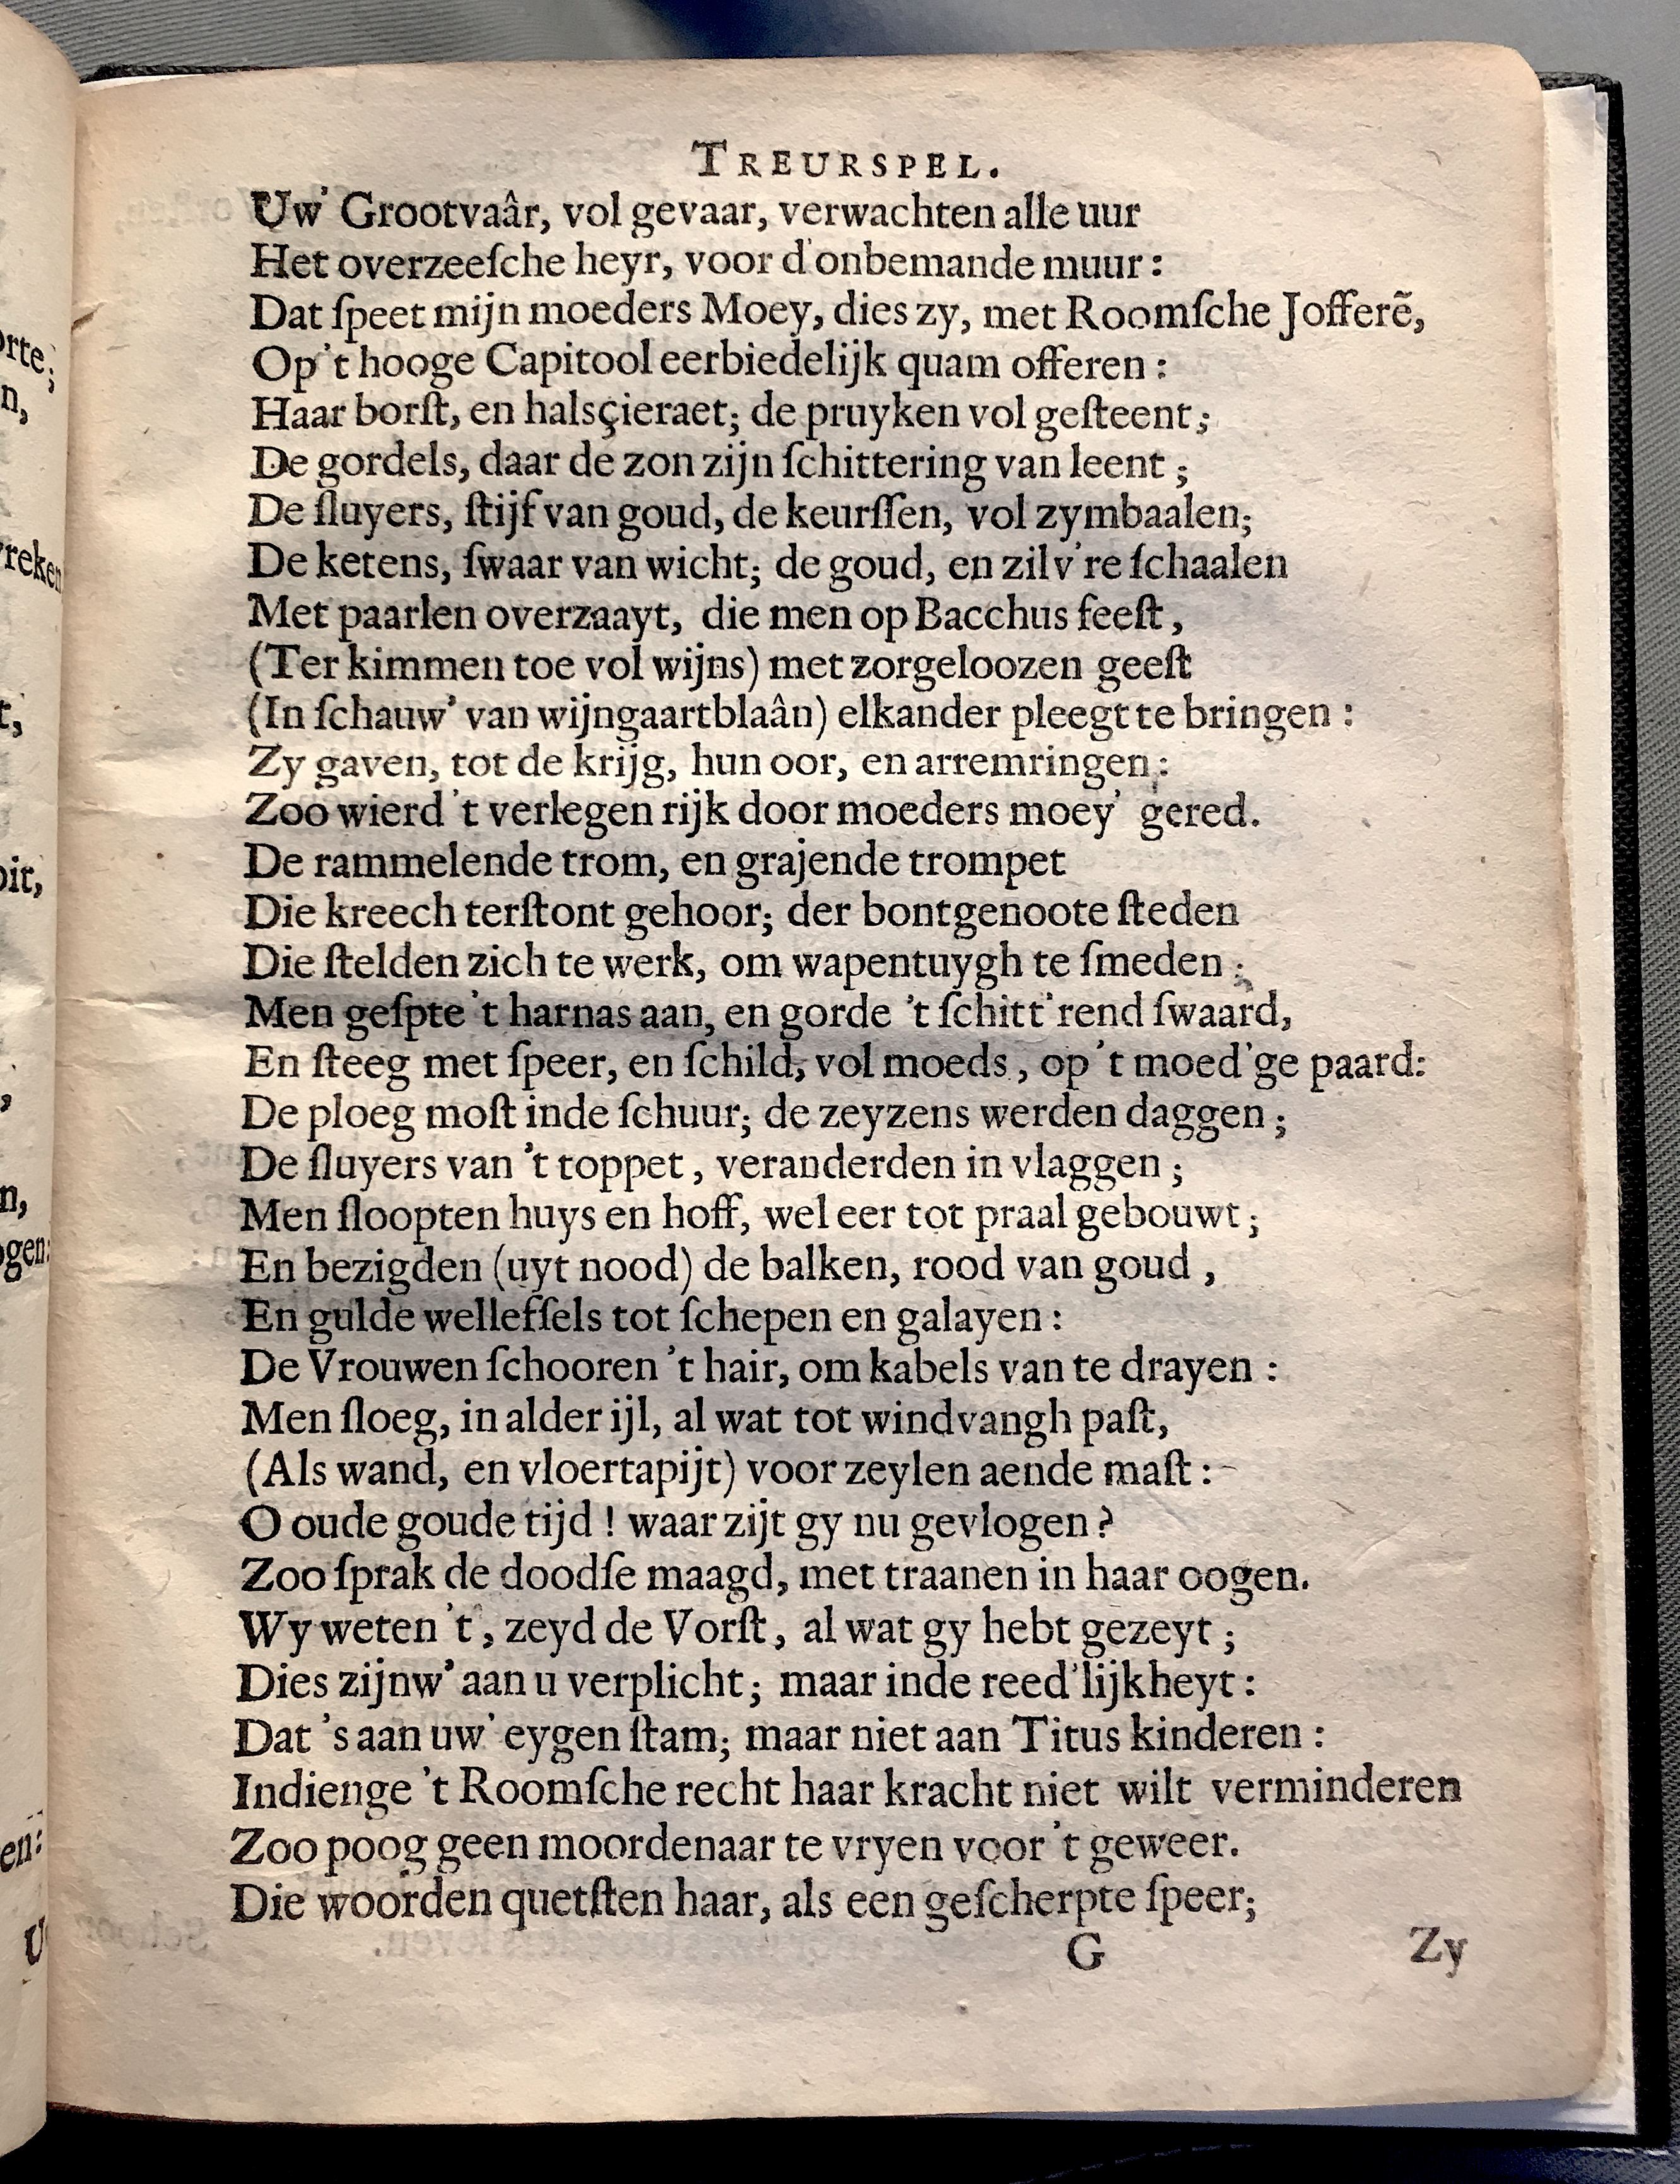 TREURSPEL.
Uw' Grootvaâr, vol gevaar, verwachten alle uur
Het overzeeſche heyr, voor d'onbemande muur:
Dat ſpeet mijn moeders Moey, dies zy, met Roomſche Jofferẽ,
Op 't hooge Capitool eerbiedelijk quam offeren:
Haar borſt, en halsçieraet; de pruyken vol geſteent;
De gordels, daar de zon zijn ſchittering van leent;
De ſluyers, ſtijf van goud, de keurſſen, vol zymbaalen;
De ketens, ſwaar van wicht; de goud, en zilv're ſchaalen
Met paarlen overzaayt, die men op Bacchus feeſt,
(Ter kimmen toe vol wijns) met zorgeloozen geeſt
(In ſchauw' van wijngaartblaân) elkander pleegt te bringen:
Zy gaven, tot de krijg, hun oor, en arremringen:
Zoo wierd 't verlegen rijk door moeders moey' gered.
De rammelende trom, en grajende trompet
Die kreech terſtont gehoor; der bontgenoote ſteden
Die ſtelden zich te werk, om wapentuygh te ſmeden;
Men geſpte 't harnas aan, en gorde 't ſchitt'rend ſwaard,
En ſteeg met ſpeer, en ſchild, vol moeds, op 't moed'ge paard:
De ploeg moſt inde ſchuur; de zeyzens werden daggen;
De ſluyers van 't toppet, veranderden in vlaggen;
Men ſloopten huys en hoff, wel eer tot praal gebouwt;
En bezigden (uyt nood) de balken, rood van goud,
En gulde wellefſels tot ſchepen en galayen:
De Vrouwen ſchooren 't hair, om kabels van te drayen:
Men ſloeg, in alder ijl, al wat tot windvangh paſt,
(Als wand, en vloertapijt) voor zeylen aende maſt:
O oude goude tijd! waar zijt gy nu gevlogen?
Zoo ſprak de doodſe maagd, met traanen in haar oogen.
Wy weten 't, zeyd de Vorſt, al wat gy hebt gezeyt;
Dies zijnw' aan u verplicht; maar inde reed'lijkheyt:
Dat 's aan uw' eygen ſtam; maar niet aan Titus kinderen:
Indienge 't Roomſche recht haar kracht niet wilt verminderen
Zoo poog geen moordenaar te vryen voor 't geweer.
Die woorden quetſten haar, als een geſcherpte ſpeer;
G Zy